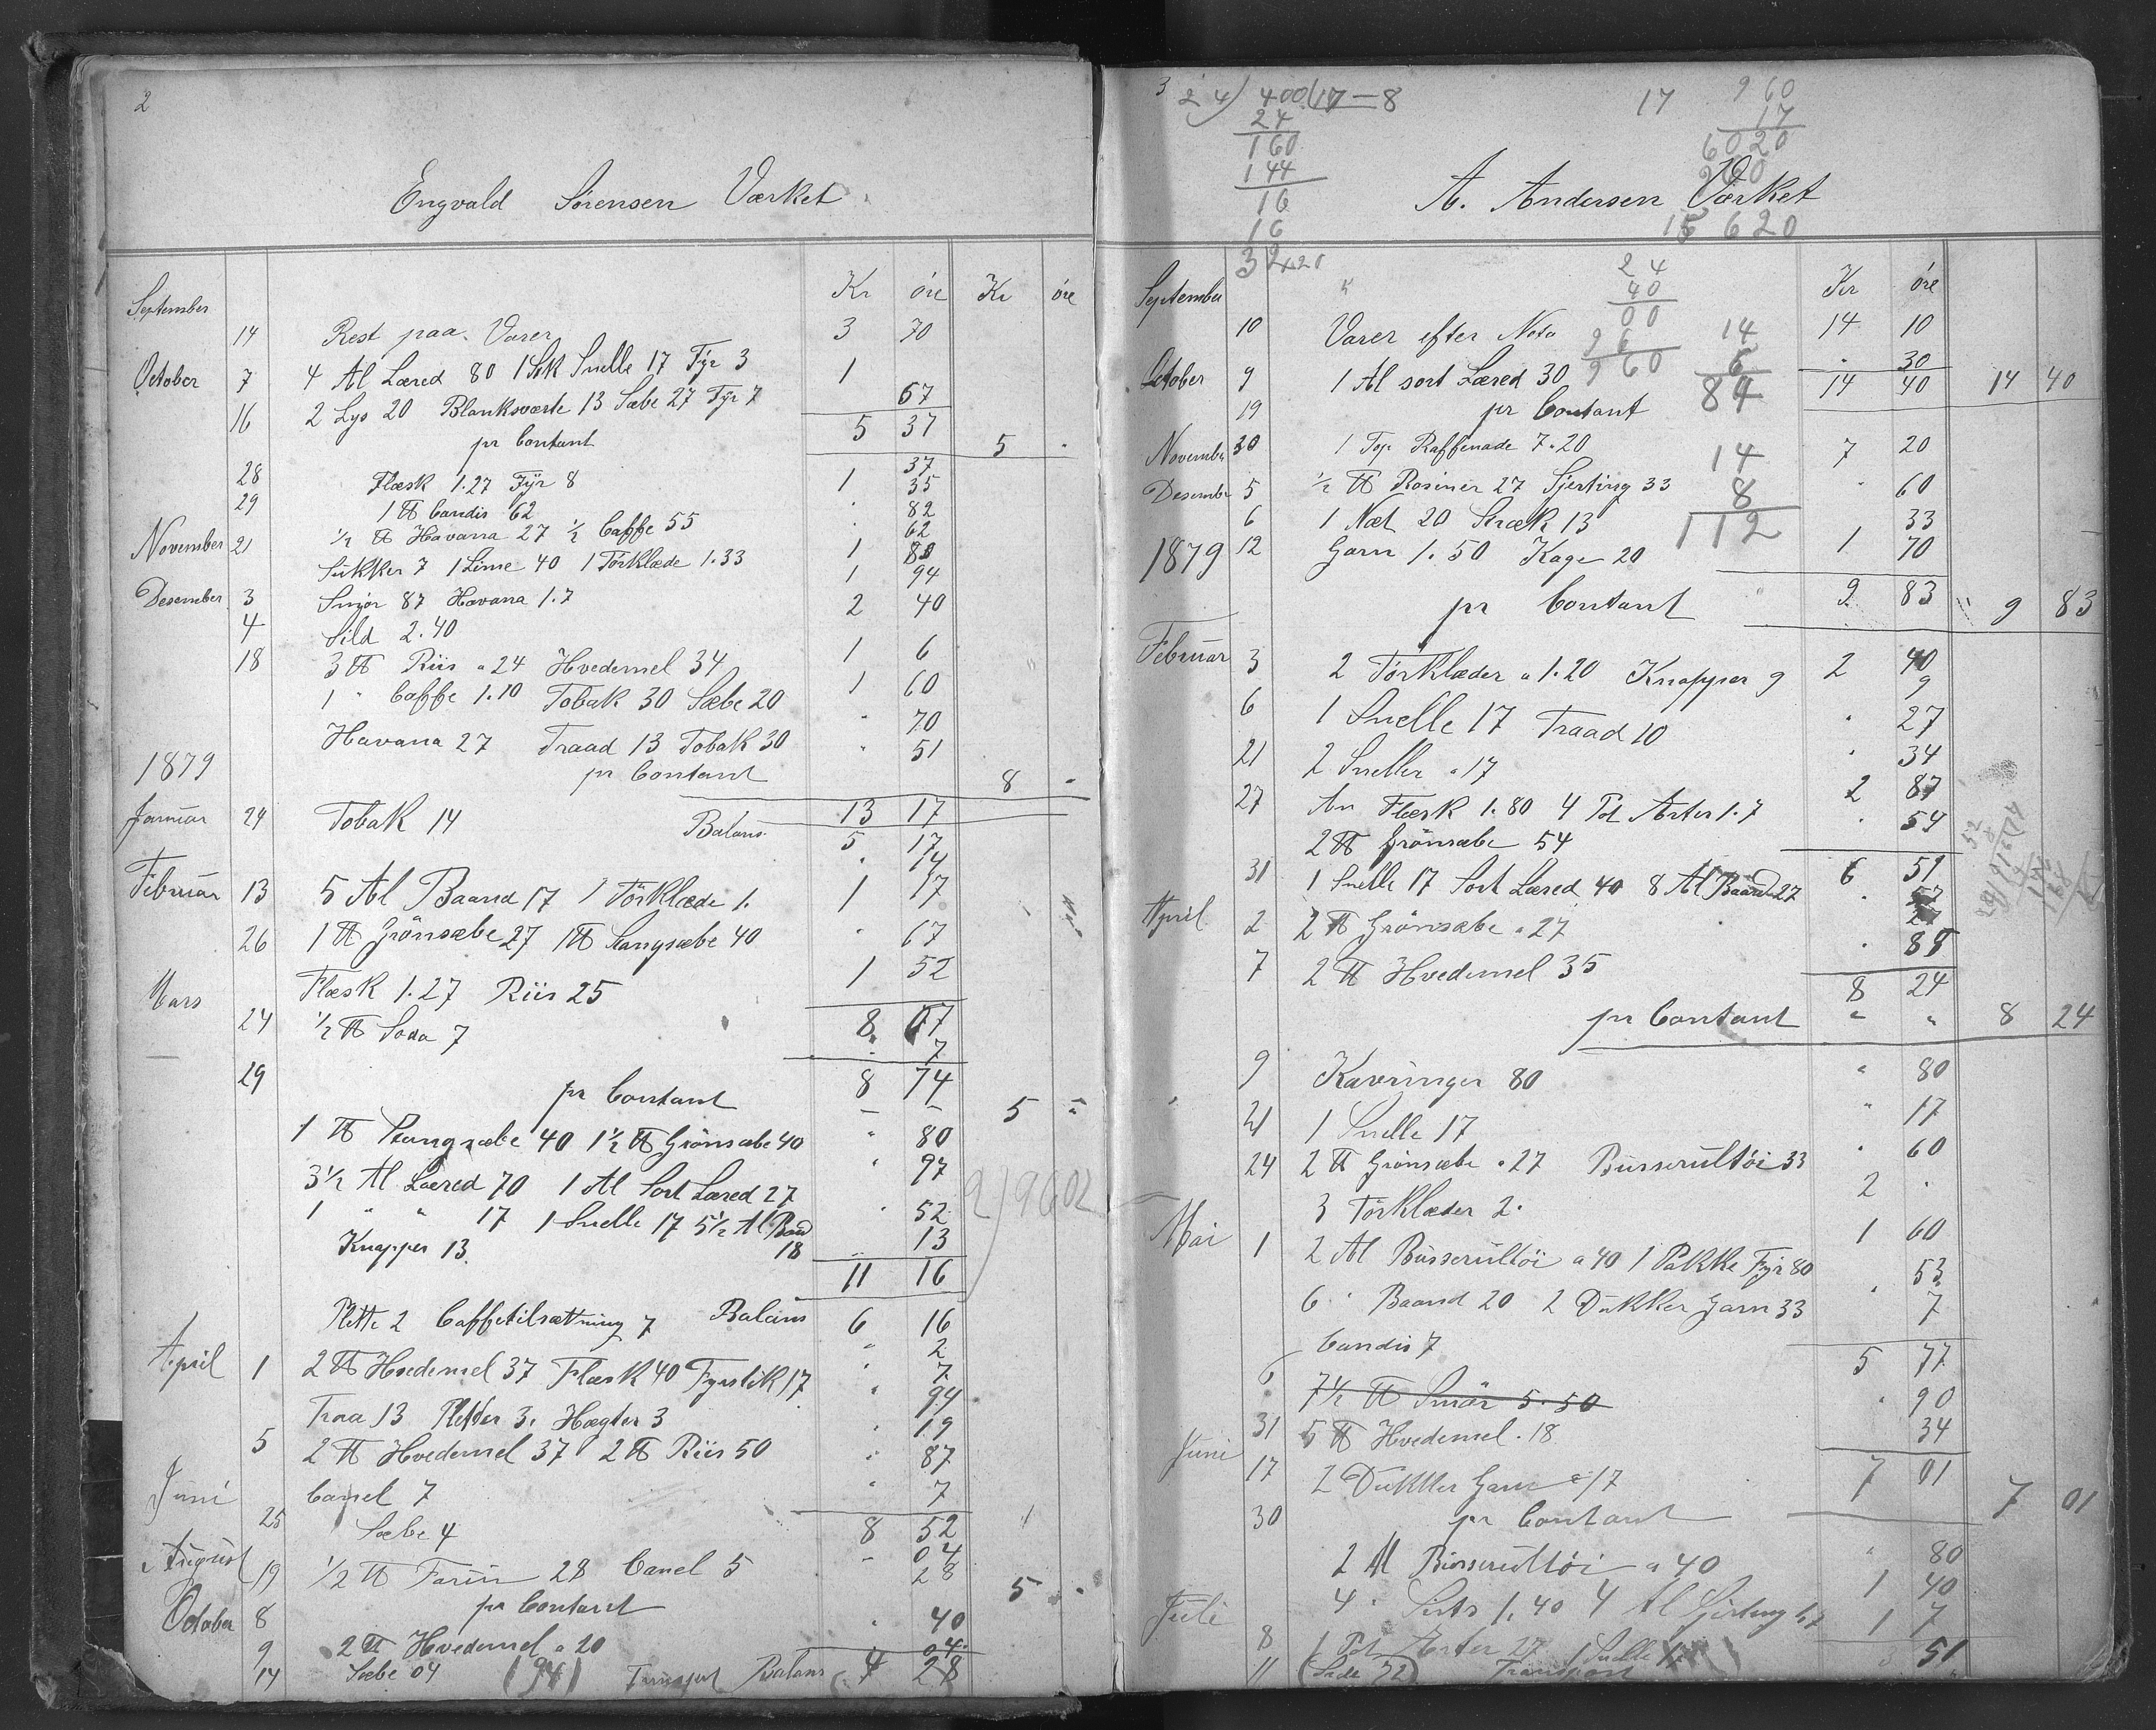 2
Engvald Sørensen Værket
Kr øre Kr øre
September 14 Rest paa Varer 3 70
October 7 4 Al Læred 80 1 Stk Snelle 17 Fyr 3 1
16 2 Lys 20 Blanksværte 13 Sæbe 27 Fyr 7 67
5 37
pr Contant 5 "
37
28 Flæsk 1.27 Fyr 8 1 35
29 1 ℔ Candis 62 " 82
November 21 ½ ℔ Havana 27 ½ Caffe 55 " 62
Sukker 7 1 Lime 40 1 Törklæde 1.33 1 80
Desember 3 Smør 87 Havana 1.7 1 94
4 Sild 2.40 2 40
18 3 ℔ Riis a 24 Hvedemel 34 1 6
1 " Caffe 1.10 Tobak 30 Sæbe 20 1 60
" 70
Havana 27 Traad 13 Tobak 30 " 51
1879 pr Contant 8 "
13 17
Januar 24 Tobak 14 Balans 5 17
" 14
Februar 13 5 Al Baand 17 1 Törklæde 1. 1 17
26 1 ℔ Grönsæbe 27 1 ℔ Stangsæbe 40 " 67
Mars Flæsk 1.27 Riis 25 1 52
24 ½ ℔ Soda 7 8 67
" 7
29 pr Contant 8 74 5 "
1 ℔ Stangsæbe 40 1½ ℔ Grönsæbe 40 " 80
3½ Al Læred 70 1 Al Sort Læred 27 " 97
1 " " 17 1 Snelle 17 5½ Al Baand 18 " 52
Knapper 13 " 13
11 16
Plette 2 Caffetilsætning 7 Balans 6 16
" 2
" 7
April 1 2 ℔ Hvedemel 37 Flæsk 40 Fyrstik 17 " 94
Traa 13 Pletter 3. Hægter 3 " 19
5 2 ℔ Hvedemel 37 2 ℔ Riis 50 " 87
Juni Canel 7 " 7
25 Sæbe 4 8 52
" 04
August 19 ½ ℔ Farin 28 Canel 5 28
October 8 pr Contant 5 "
9 2 ℔ Hvedemel a 20 " 40
14 Sæbe 04 04
(94) Transport Balans 4 28
2)9602
3
24) 400(17=8
24
160
144
16
16
17
960
17
6020
960
15 620
A. Andersen Værket
24
40
00
96
960
14
6
84
14
8
112
Kr øre
September 10 Varer efter Nota 14 10
October 9 1 Al sort Læred 30 " 30
14 40 14 40
19 pr Contant
November 30 1 Top Raffenade 7.20 7 20
Desember 5 ½ ℔ Rosiner 27 Sjerting 33 " 60
6 1 Næt 20 Stræk 13 33
1879 12 Garn 1.50 Kage 20 1 70
pr Contant 9 83 9 83
Februar 3 2 Törklæder a 1.20 Knapper 9 2 40
9
6 1 Snelle 17 Traad 10 " 27
21 2 Sneller a 17 " 34
27 Flæsk 1.80 4 Pot Arter 1.7 2 87
2 ℔ Grönsæbe 54 " 54
6 51
31 1 Snelle 17 Sort Læred 40 8 Al Baand 27
April 2 2 ℔ Grönsæbe a 27
7 2 ℔ Hvedemel 35
8 24
pr Contant " " 8 24
9 Kavringer 80 " 80
21 1 Snelle 17 " 17
24 2 ℔ Grönsæbe a 27 Busserultöi 33 " 60
3 Törklæder 2. 2 "
Mai 1 2 Al Busserultöi a 40 1 Pakke Fyr 80 1 60
6 " Baand 20 2 Dukker Garn 33 " 53
Candis 7 " 7
5 77
6 7½ ℔ Smör 5.50
31 5 ℔ Hvedemel a 18 " 90
Juni 17 2 Dukker Garn a 17 34
7 01
30 pr Contant 7 01
2 Al Busserultöi a 40 " 80
4 " Sirts 1.40 4 Al Sjirting 1 40
Juli 8 1 Pot Arter 27 1 Snelle 1 7
11 Transport 3 51